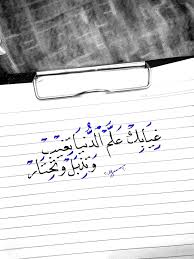 غيابك علم الدنيا تغيب
وتذبل وتحتار